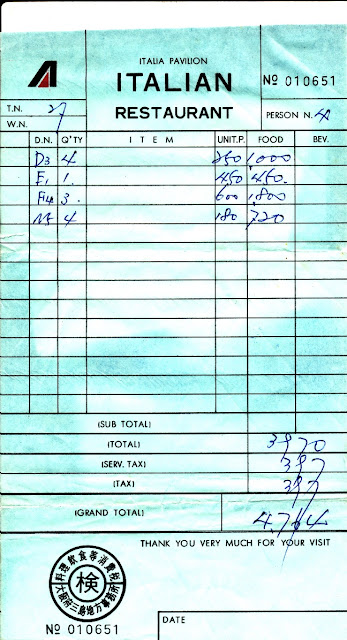 ITALIA PAVILION
ITALIAN
RESTAURANT
Nº 010651
T.N. 27
W.N.
PERSON N. 4
D.N. Q'TY ITEM UNIT.P. FOOD BEV.
D3 4 250 1000
E1 1 450 450.
F14 3 600 1800
4 180 720
(SUB TOTAL)
(TOTAL) 3970
(SERV. TAX) 397
(TAX) 397
(GRAND TOTAL) 4,764
THANK YOU VERY MUCH FOR YOUR VISIT
料理飲食等消費税
検
大阪府三島地方事務所
Nº 010651
DATE